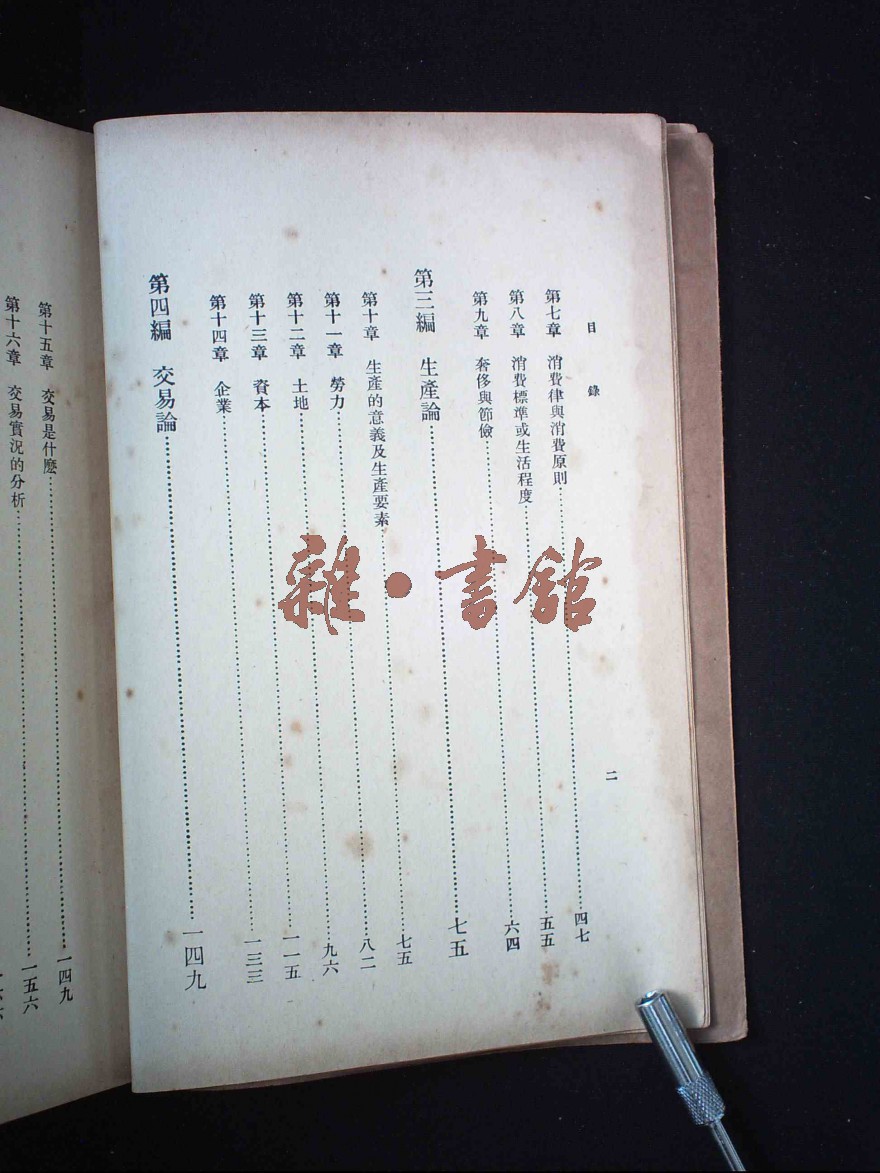 目錄
二
第七章 消費律與消費原則……四七
第八章 消費標準或生活程度……五五
第九章 奢侈與節儉……六四
第三編 生產論……七五
第十章 生產的意義及生產要素……七五
第十一章 勞力……八二
第十二章 土地……九六
第十三章 資本……一一五
第十四章 企業……一三三
第四編 交易論……一四九
第十五章 交易是什麼……一四九
第十六章 交易實況的分析……一五六
雜·書館